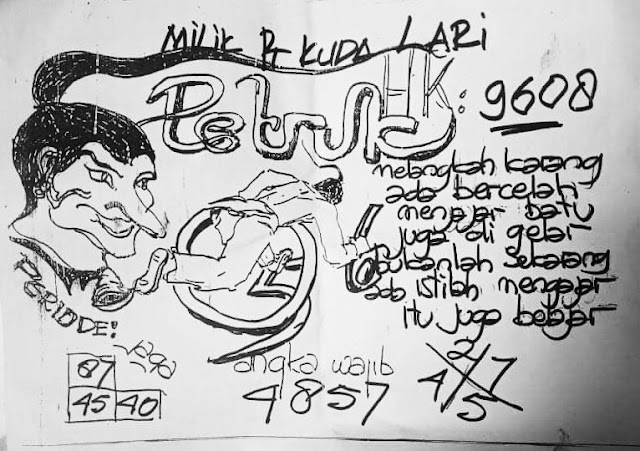 MILIK Pt KUDA LARI
HK: 9608
melangkah karang
ada bercelah
mengajar batu
juga di gelar
bukanlah sekarang
ada istilah mengajar
itu juga belajar
PERIODE:
87
45 40
angka wajib
4857
2/7
4/5